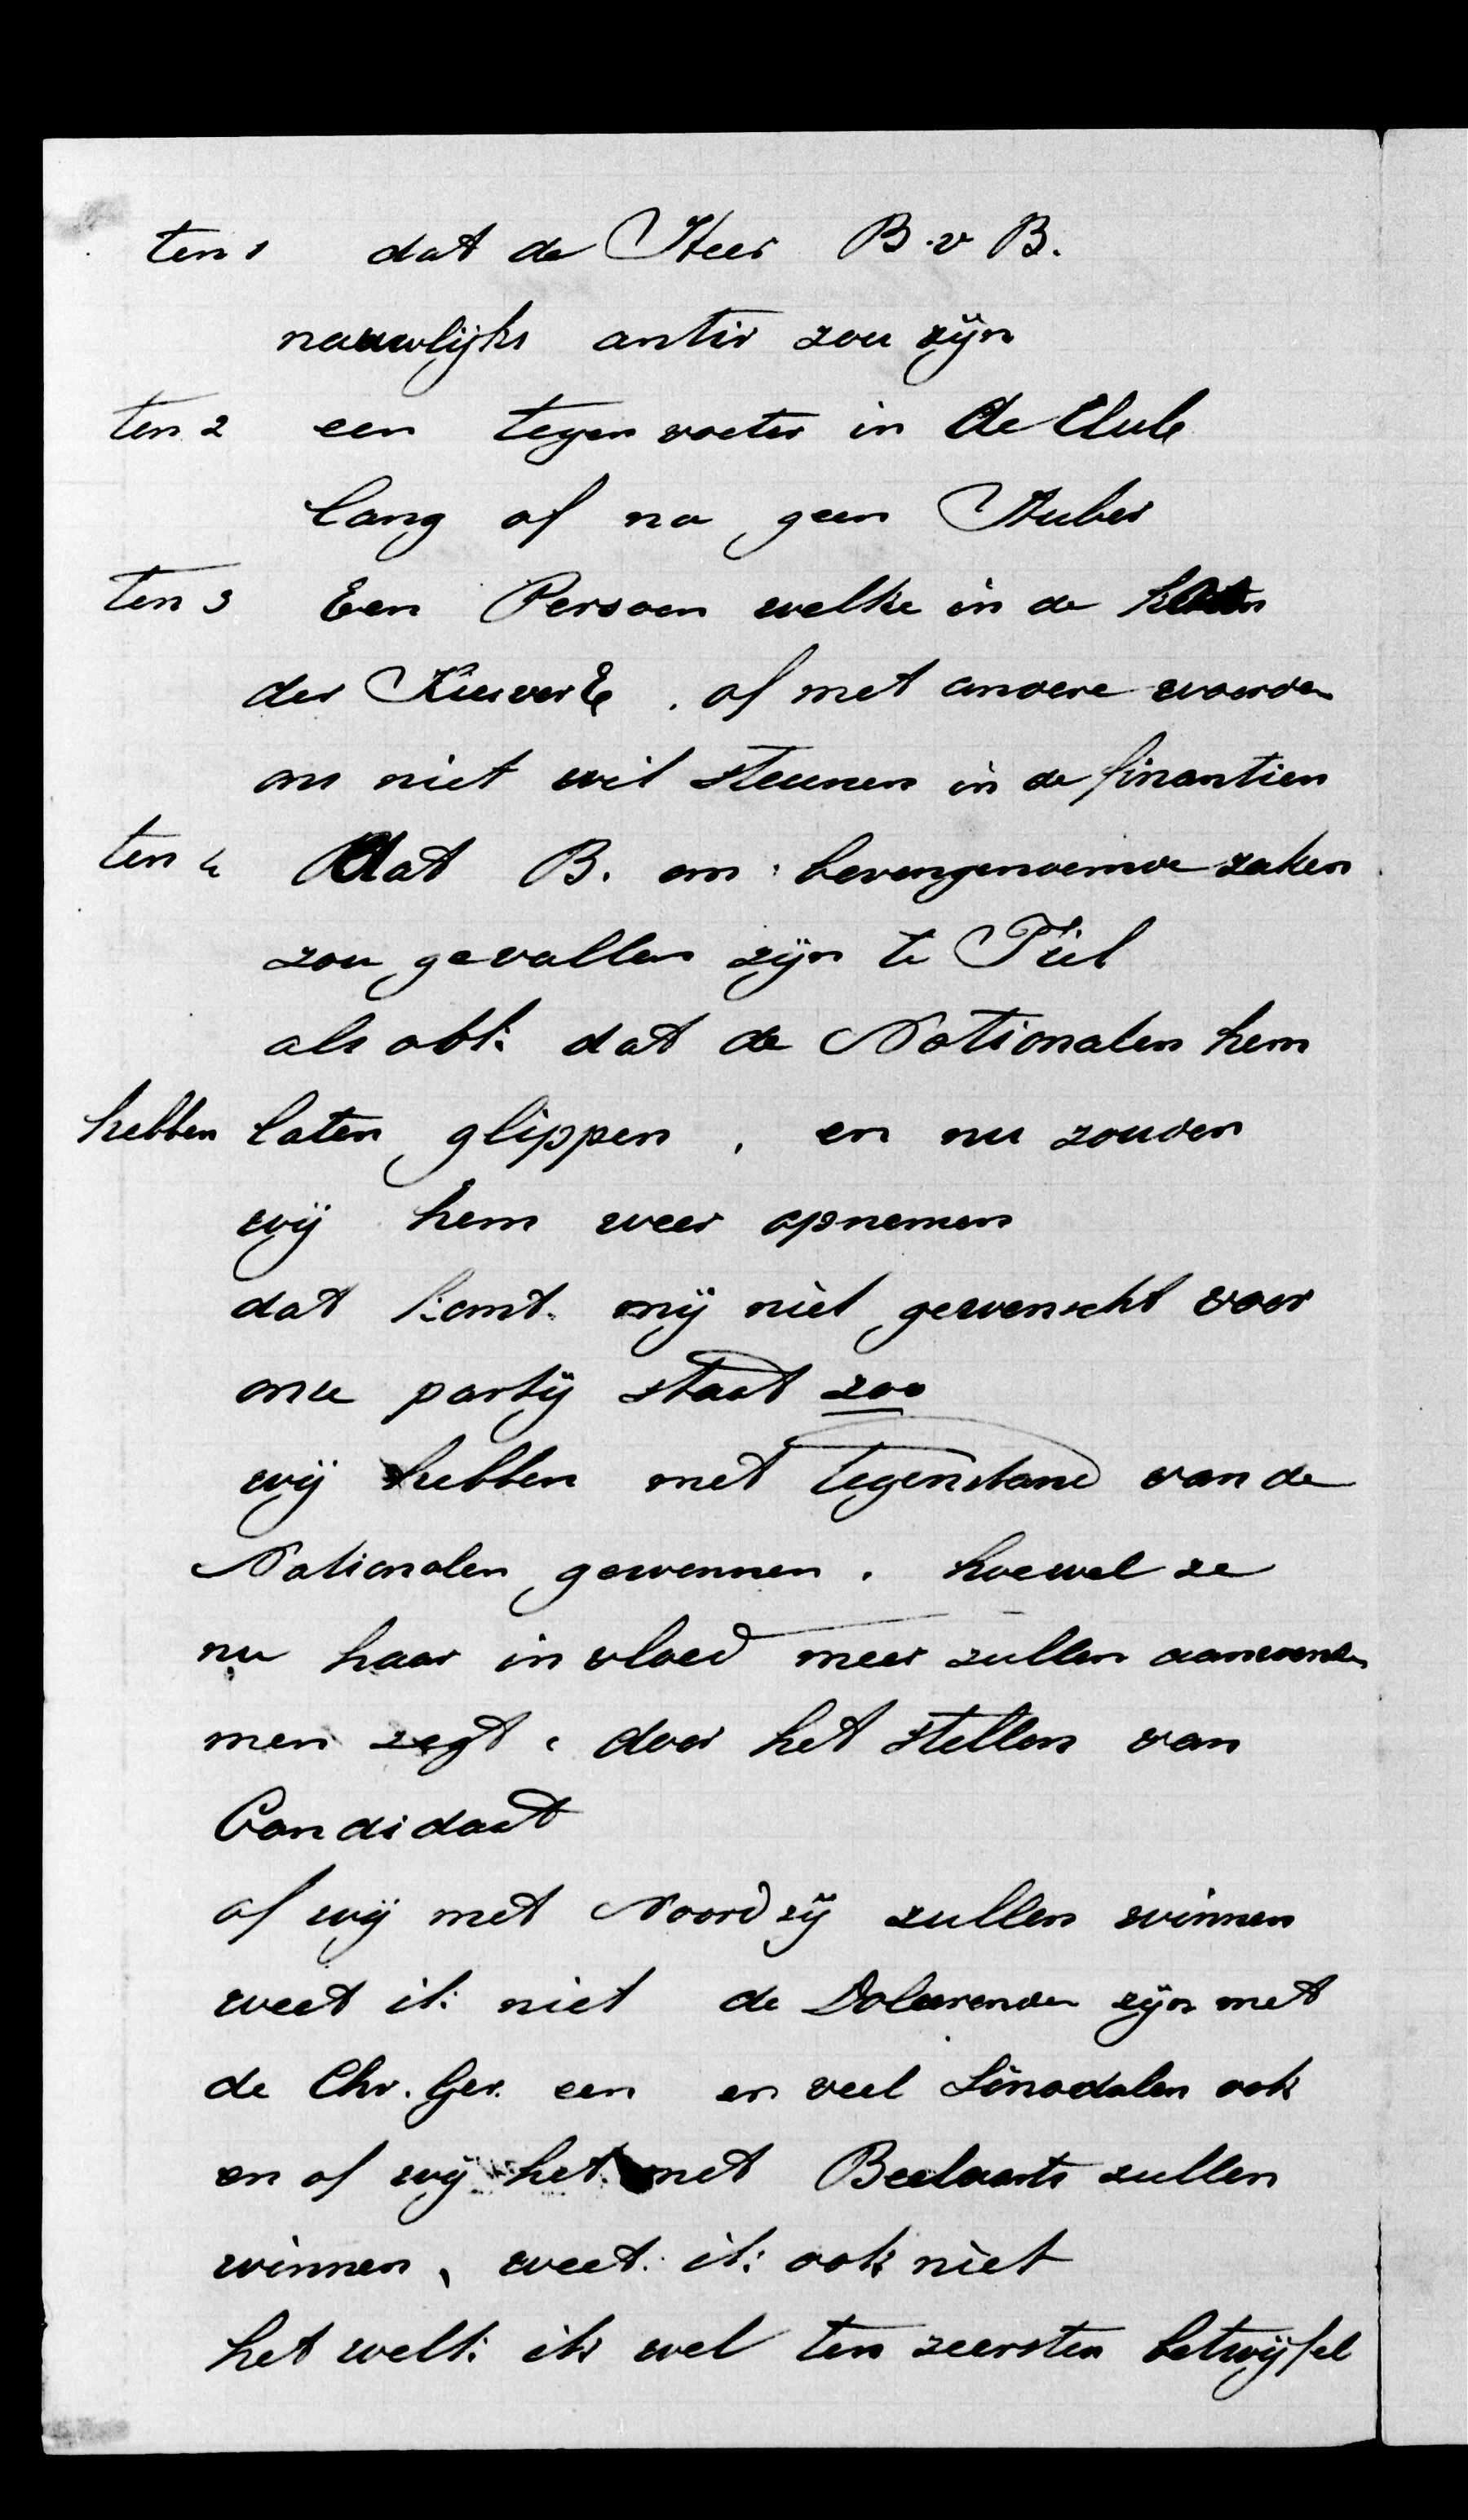 ten 1 dat de Heer B. v B.
nauwlijks antir zou zijn
ten 2 een tegen voeter in de Club
lang of na geen Kuber
ten 3 Een Persoon welke in de
der Kiesver E. of met andere woorden
ons niet wil steunen in de finantien
ten 4 Dat B. om bovengenoemde zaken
zou gevallen zijn te Tiel
als ook dat de Nationalen hem
hebben laten glippen, en nu zouden
wij hem weer opnemen
dat komt mij niet gewenscht voor
onze partij staat zoo
wij hebben met tegenstand van de
Nationalen gewonnen. hoewel ze
nu haar invloed meer zullen aanwenden
men zegt, door het stellen van
Candidaat
of wij met Noordzij zullen winnen
weet ik niet de Doleerenden zijn met
de Chr. Ger. een en veel Sinodalen ook
en of wij het met Beelaerts zullen
winnen, weet ik ook niet
het welk ik wel ten zeersten betwijfel